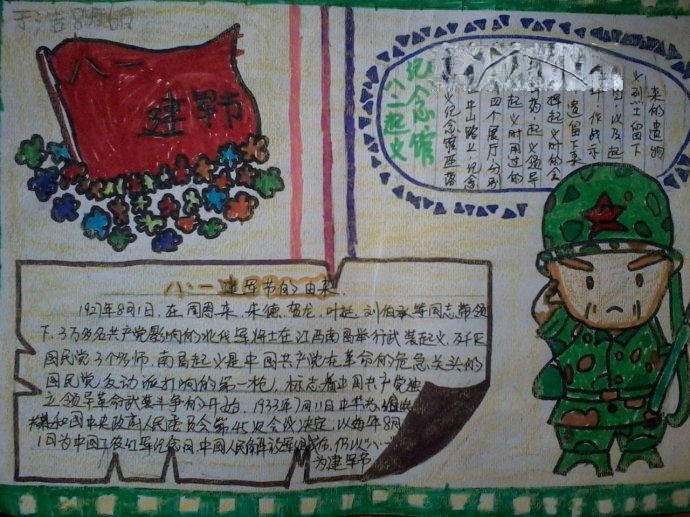 八一
建军节
八一起义
纪念馆
义纪念馆座落
牛山路上,纪念
四个展厅,分别
起义时用过的
起义领导
挥起义时的会
遗留下来
作战示
以及起
义烈士留下
来的遗物
八·一建军节的由来
1927年8月1日,在周恩来、朱德、贺龙、叶挺、刘伯承等同志带领
下,3万多名共产党影响的北伐军将士在江西南昌举行武装起义,歼灭
国民党3个多师。南昌起义是中国共产党在革命的危急关头的
国民党反动派打响的第一枪,标志着中国共产党独
立领导革命武装斗争的开始。1933年7月11日中华
和国中央政府人民委员会第45次会议决定,以每年8月
1日为中国工农红军纪念日,中国人民解放军组成后,仍以"八一"
为建军节